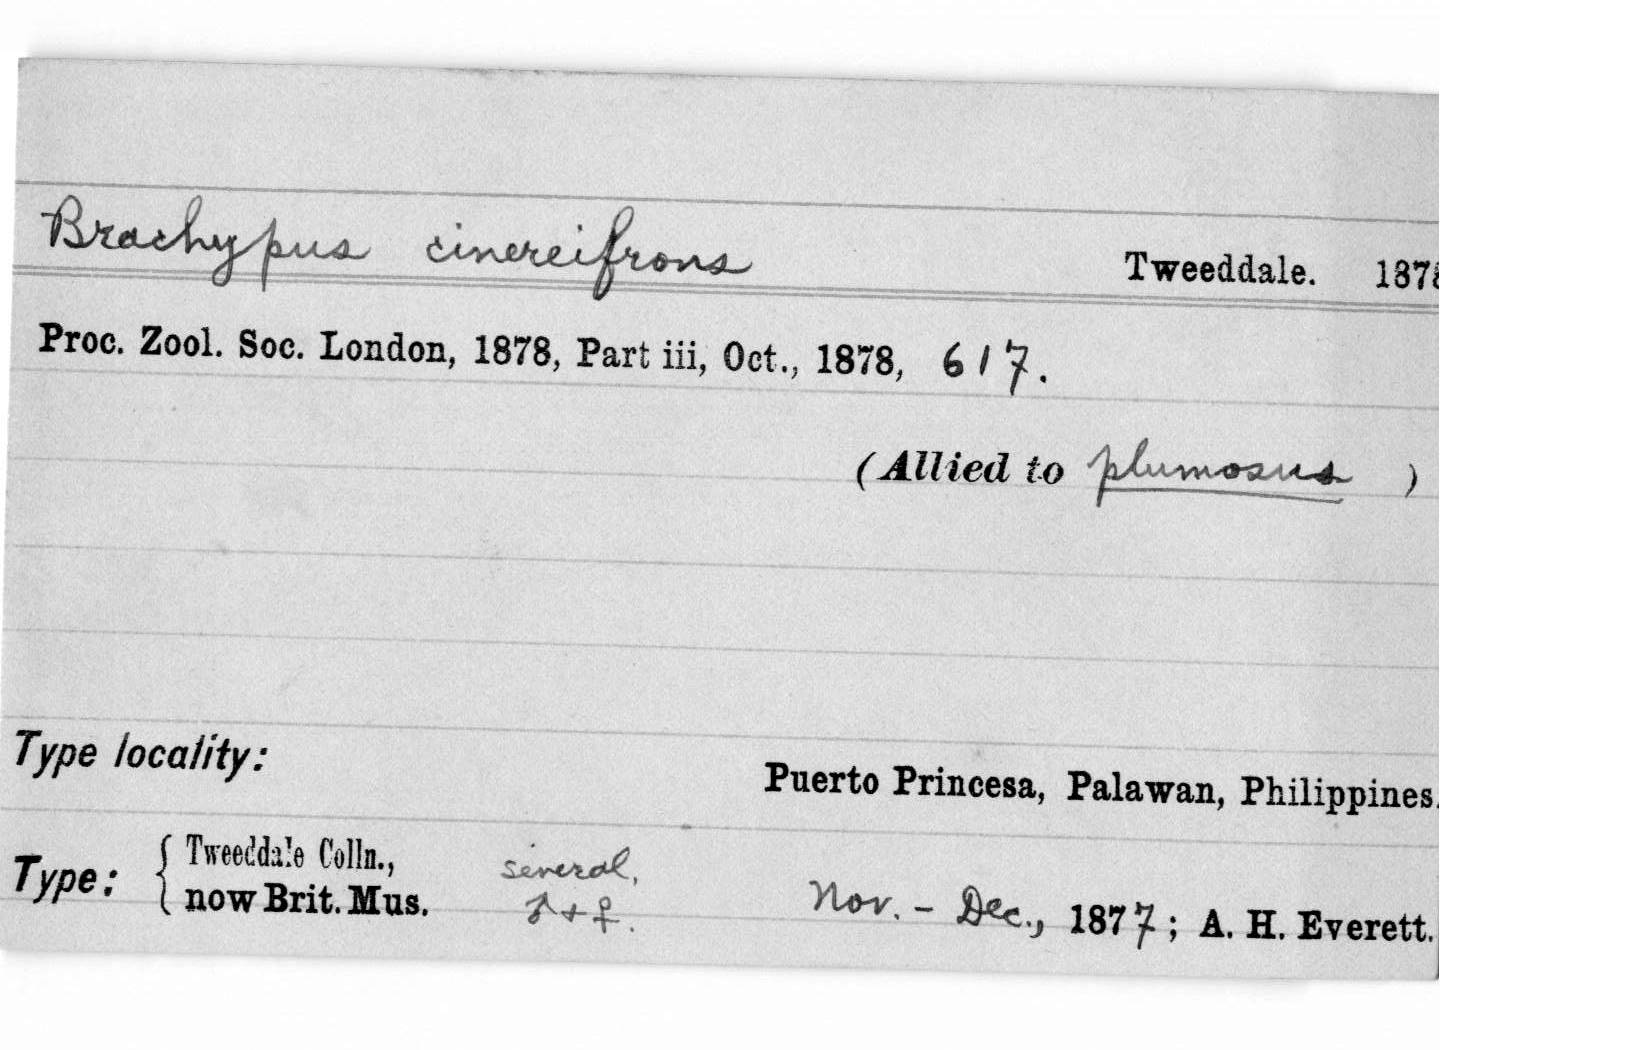 Brachypus cinereifrons Tweeddale. 1878
Proc. Zool. Soc. London, 1878, Part iii, Oct., 1878, 617.
(Allied to plumosus )
Type locality:
Puerto Princesa, Palawan, Philippines.
Type: { Tweeddale Colln., several,
now Brit. Mus. ♂ + ♀. Nov. - Dec., 1877; A. H. Everett.